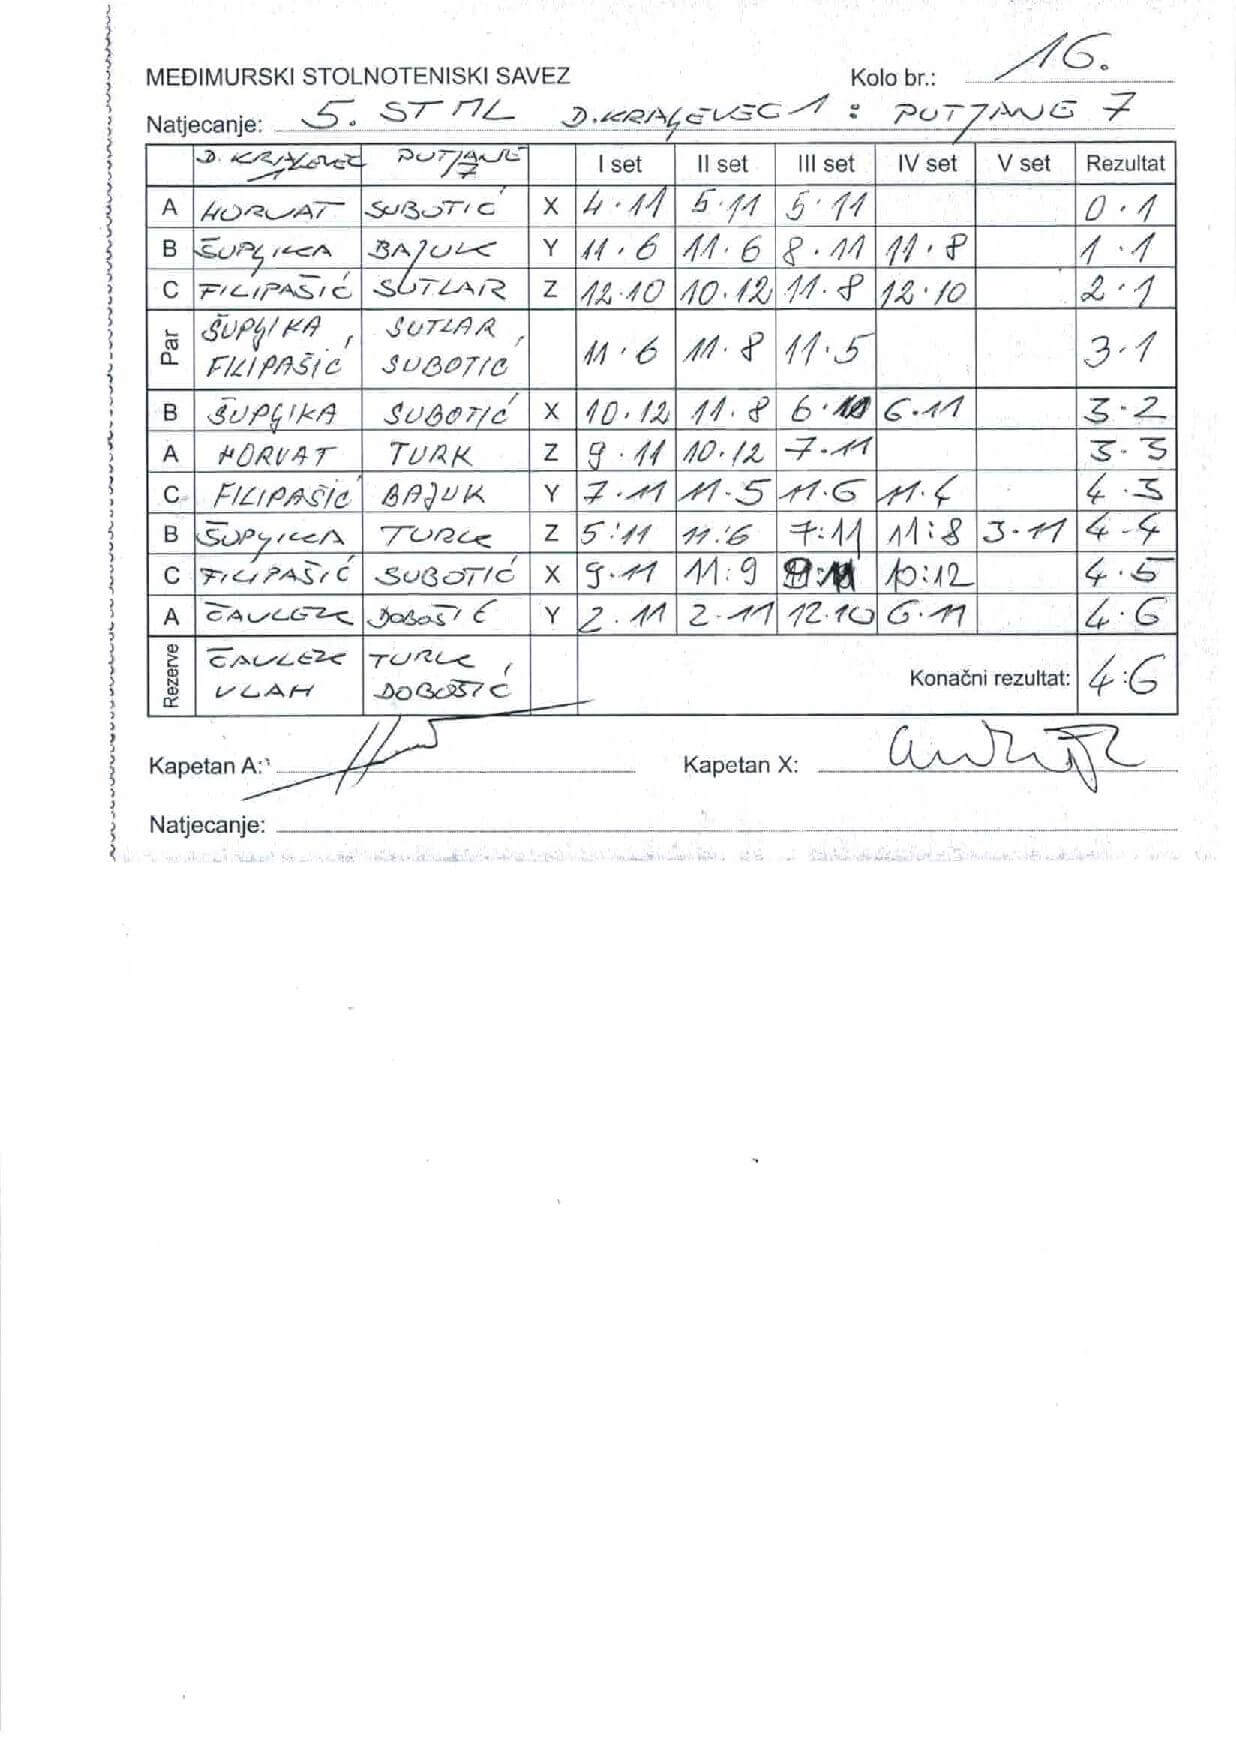 MEĐIMURSKI STOLNOTENISKI SAVEZ Kolo br.: 16.
Natjecanje: 5. STML D.KRALJEVEC 1 : PUTJANE 7
D. KRALJEVEC 1 PUTJANE 7 I set II set III set IV set V set Rezultat
A HORVAT SUBOTIĆ X 4.11 5.11 5.11 0.1
B ŠUPLJIKA BAJUK Y 11.6 11.6 8.11 11.8 1.1
C FILIPAŠIĆ SUTLAR Z 12.10 10.12 11.8 12.10 2.1
Par ŠUPLJIKA, SUTLAR, 11.6 11.8 11.5 3.1
FILIPAŠIĆ SUBOTIĆ
B ŠUPLJIKA SUBOTIĆ X 10.12 11.8 6.11 6.11 3.2
A HORVAT TURK Z 9.11 10.12 7.11 3.3
C FILIPAŠIĆ BAJUK Y 7.11 11.5 11.6 11.4 4.3
B ŠUPLJIKA TURK Z 5:11 11:6 7:11 11:8 3.11 4-4
C FILIPAŠIĆ SUBOTIĆ X 9.11 11:9 10:12 4.5
A ČAVLEK DOBOŠIĆ Y 2.11 2.11 12.10 6.11 4.6
Rezerve ČAVLEK TURK,
VLAH DOBOŠIĆ Konačni rezultat: 4:6
Kapetan A: Kapetan X:
Natjecanje: